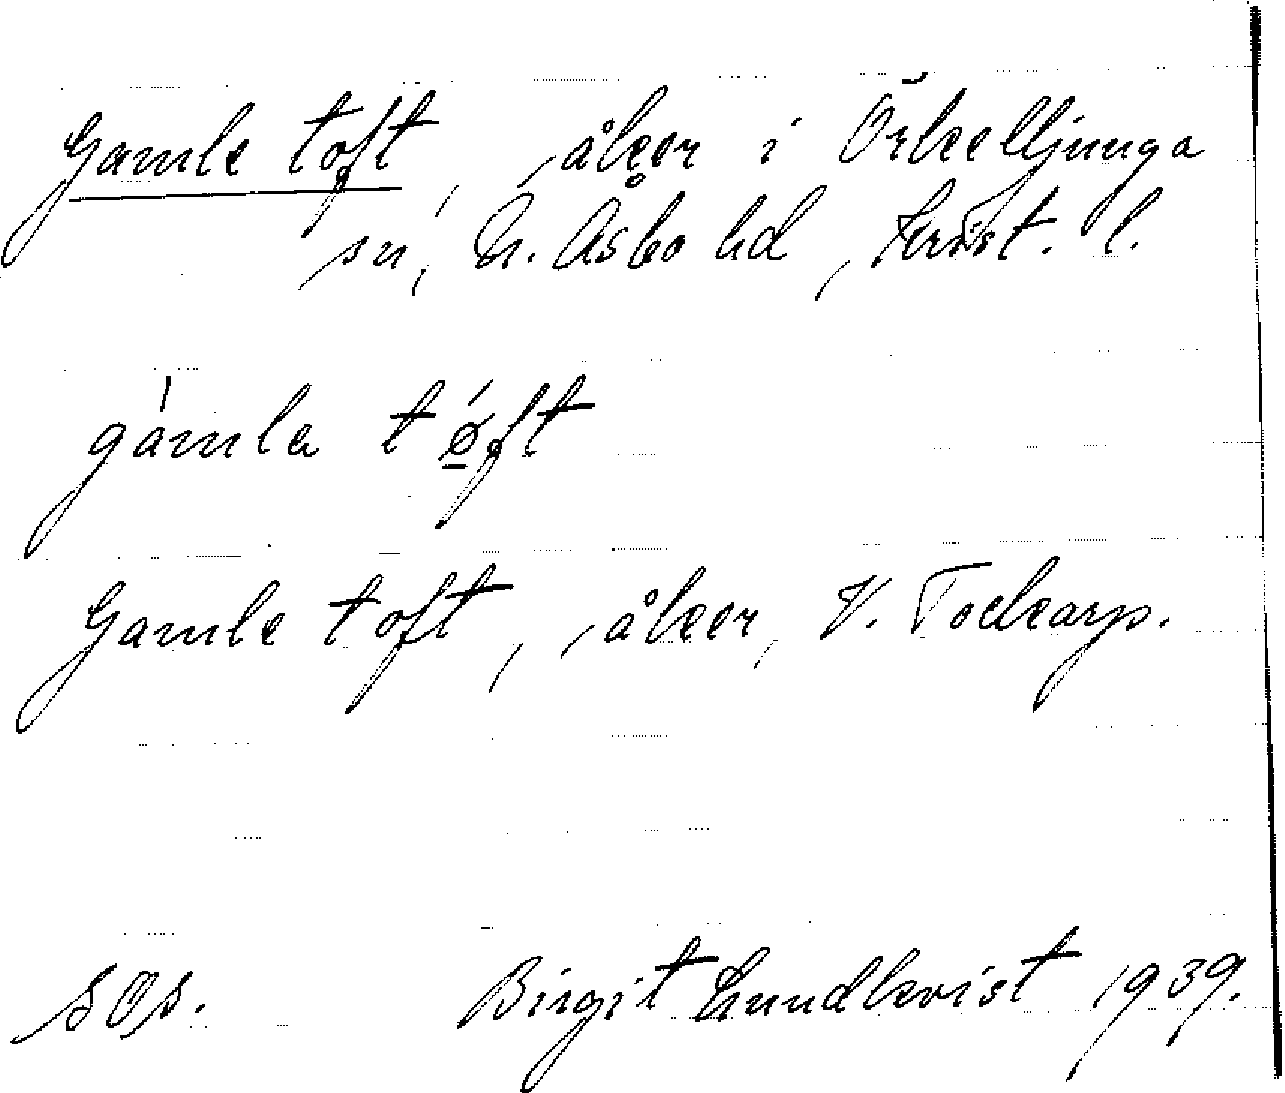 Gamle toft, åker i Örkelljunga
sn, N. Åsbo hd, Krist. l.
gámla tǿ̱ft
Gamle toft, åker, V. Tockarp.
SOS. Birgit Lundkvist 1939.